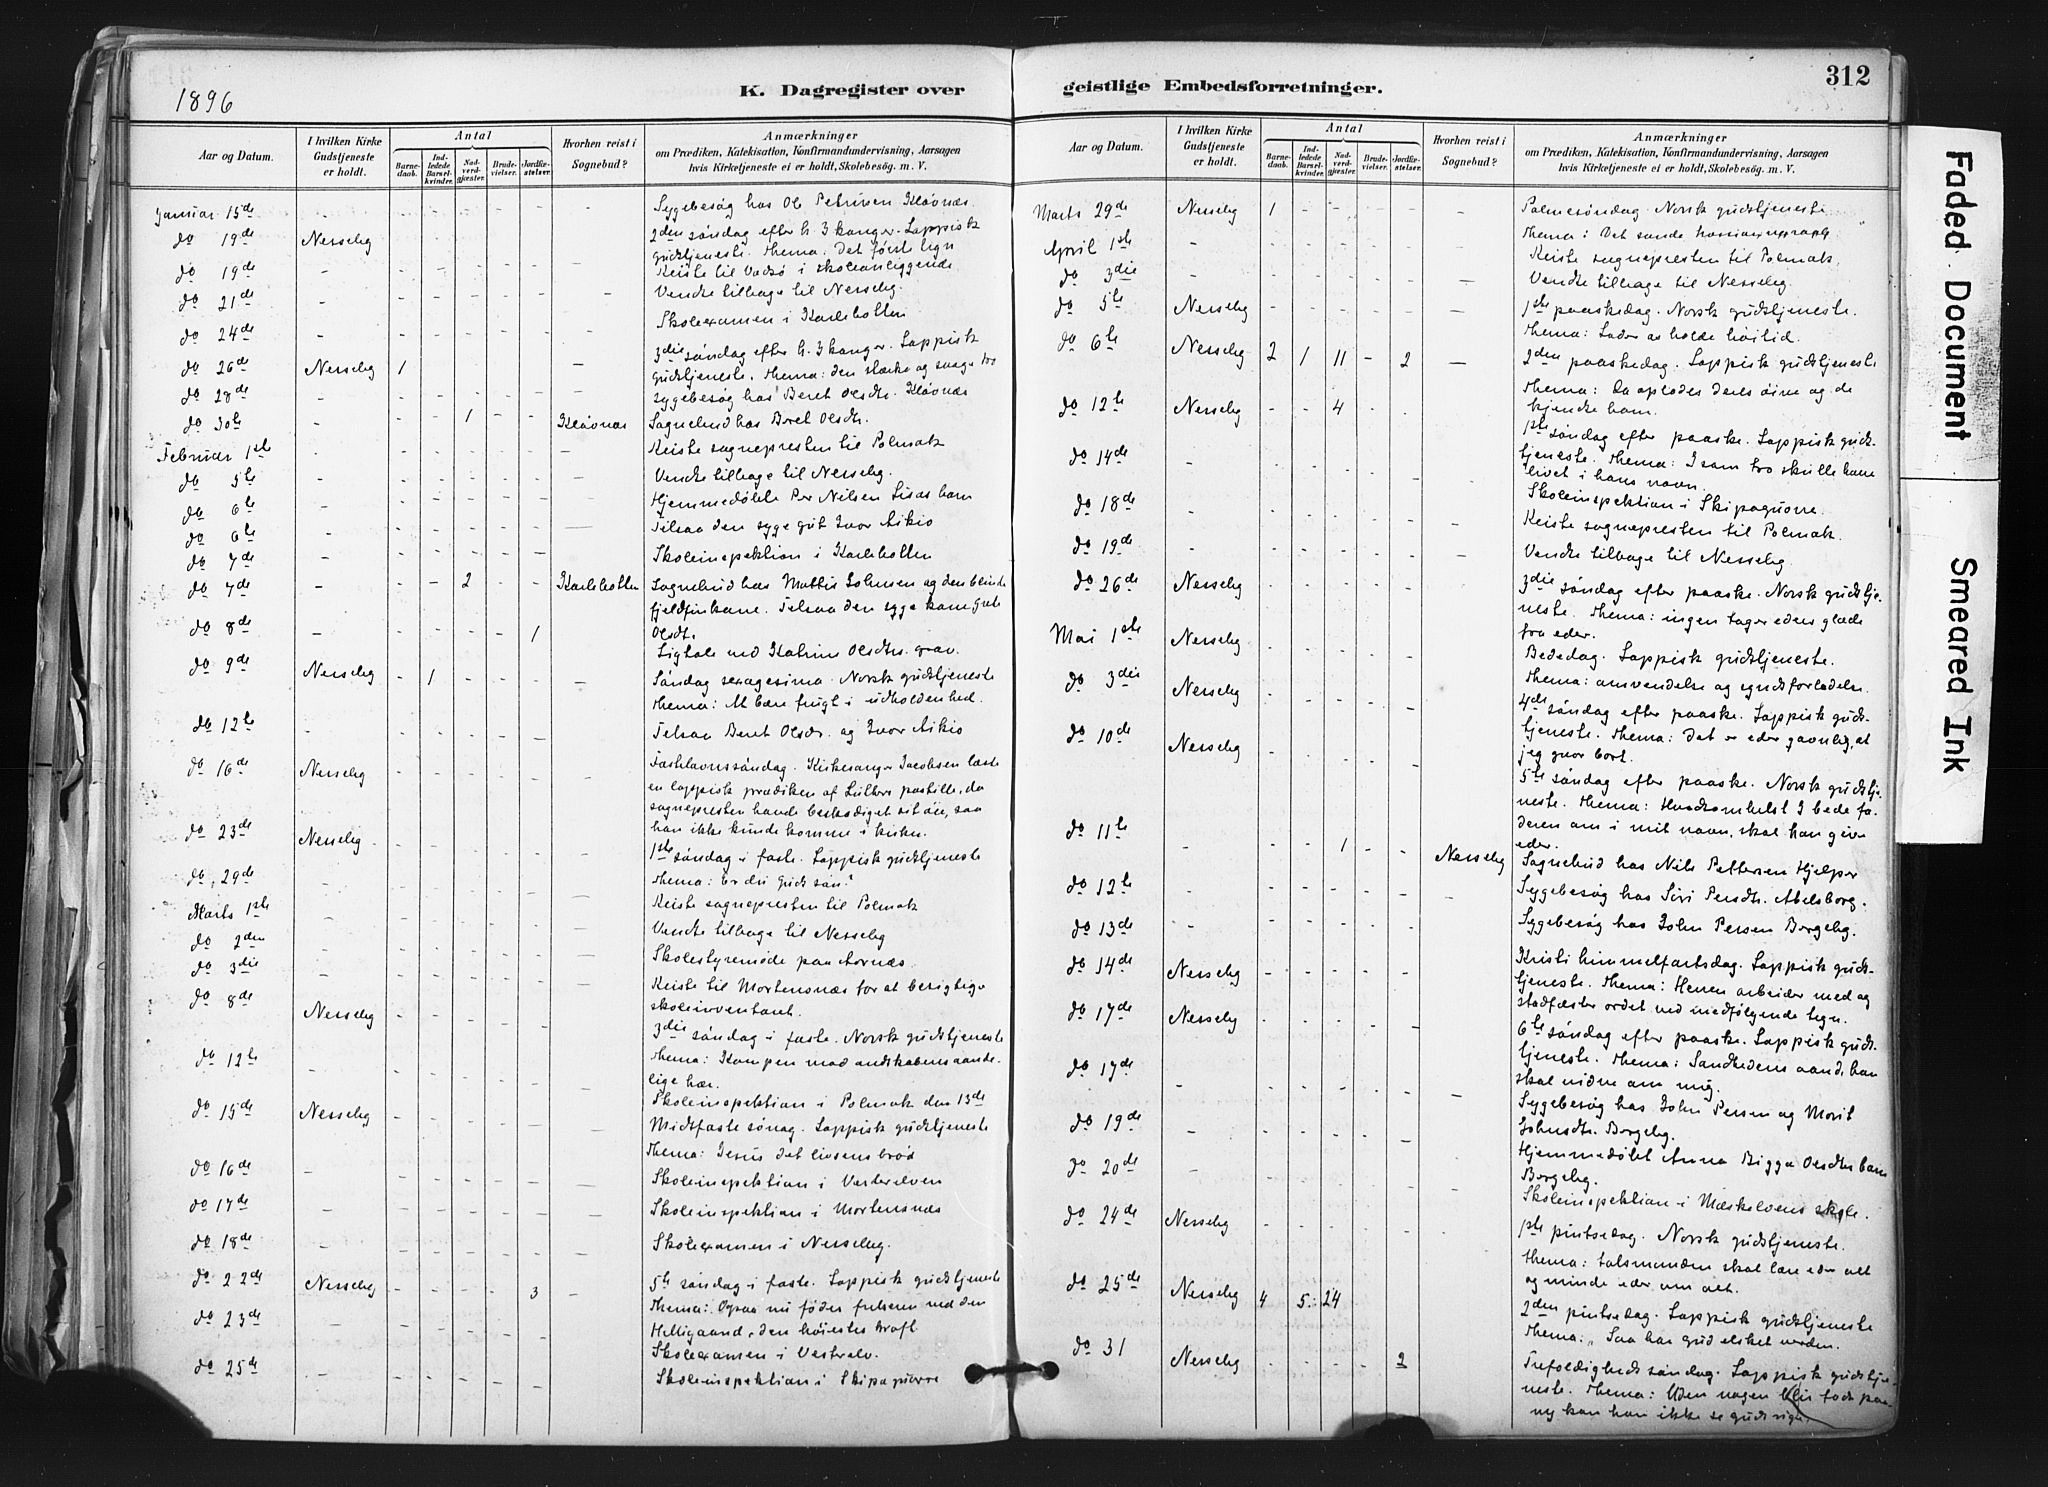 1896
K. Dagregister over
geistlige Embedsforretninger.
312
Aar og Datum.
I hvilken Kirke Gudstjeneste er holdt.
Antal
Barnedaab.
Indledede Barselkvinder.
Nadverdgjæster.
Brudevielser.
Jordfæstelser.
Hvorhen reist i Sognebud?
Anmærkninger
om Prædiken, Katekisation, Konfirmandundervisning, Aarsagen
hvis Kirketjeneste ei er holdt, Skolebesøg. m. V.
Januar 15de - Sygebesøg hos Ole Petersen Kløvnæs.
do 19de Nesseby 2den søndag efter h. 3 konger. Lappisk
gudstjeneste. Thema: Det første tegn
do 19de - Reiste til Vadsø i skoleanliggende
do 21de - Vendte tilbage til Nesseby.
do 24de - Skoleexamen i Karlebotten
do 26de Nesseby 1 3die søndag efter h. 3 konger. Lappisk
gudstjeneste. Thema: den stærke og svage tro
do 28de - Sygebesøg hos Beret Olsdtr. Kløvnæs
do 30te - 1 Kløvnæs Sognebud hos Beret Olsdtr.
Februar 1ste - Reiste sognepresten til Polmak
do 5te - Vendte tilbage til Nesseby.
do 6te - Hjemmedøbte Per Nilsen barn
do 6te - Tilsaa den syge gut Ivar Aikio
do 7de - Skoleinspektion i Karlebotten
do 7de - 2 Karlebotten Sognebud hos Mattis Johnsen og den blinde
fjeldfinkone. Tilsaa den syge kone
Olsdtr.
do 8de - 1 Ligtale ved Katrine Olsdtrs. grav.
do 9de Nesseby 1 Søndag sexagesima. Norsk gudstjeneste
Thema: At bære frugt i udholdenhed.
do 12te - Tilsaa Beret Olsdr. og Ivar Aikio
do 16de Nesseby Fastelavnssøndag. Kirkesanger Jacobsen læste
en lappisk prædiken af Luthers postille, da
sognepresten havde beskadiget sit øie, saa
han ikke kunde komme i kirken.
do 23de Nesseby 1ste søndag i faste. Lappisk gudstjeneste
Thema: Er du Guds søn?
do 29de - Reiste sognepresten til Polmak
Marts 1ste - Vendte tilbage til Nesseby
do 2den - Skolestyremøde paa
do 3die - Reiste til Mortensnæs for at besigtige
skoleinventaret.
do 8de Nesseby 3die søndag i faste. Norsk gudstjeneste
Thema: Kampen mod ondskabens aande-
lige hær.
do 12te - Skoleinspektion i Polmak den 13de
do 15de Nesseby Midtfaste sønag. Lappisk gudstjeneste
Thema: Jesus det livsens brød
do 16de - Skoleinspektion i Vesterelven
do 17de - Skoleinspektion i Mortensnæs
do 18de - Skoleexamen i Nesseby.
do 22de Nesseby 3 5te søndag i faste. Lappisk gudstjeneste
Thema: Ogsaa nu fødes frelseren ved den
Helligaand, den høiestes kraft
do 23de - Skoleexamen i Vestrelv.
do 25de - Skoleinspektion i Skipagurre
Aar og Datum.
I hvilken Kirke Gudstjeneste er holdt.
Antal
Barnedaab.
Indledede Barselkvinder.
Nadverdgjæster.
Brudevielser.
Jordfæstelser.
Hvorhen reist i Sognebud?
Anmærkninger
om Prædiken, Katekisation, Konfirmandundervisning, Aarsagen
hvis Kirketjeneste ei er holdt, Skolebesøg. m. V.
Marts 29de Nesseby 1 Palmesøndag. Norsk gudstjeneste
Thema: Det sande
April 1ste - Reiste sognepresten til Polmak.
do 3die - Vendte tilbage til Nesseby.
do 5te Nesseby 1ste paaskedag. Norsk gudstjeneste.
Thema: Lader os holde høitid.
do 6te Nesseby 2 1 11 - 2 2den paaskedag. Lappisk gudstjeneste
Thema: Da oplodes deres øine og de
kjendte ham.
do 12te Nesseby 4 1ste søndag efter paaske. Lappisk guds-
tjeneste. Thema: I som tro skulle have
livet i hans navn.
do 14de - Skoleinspektion i Skipagurre.
do 18de - Reiste sognepresten til Polmak.
do 19de - Vendte tilbage til Nesseby.
do 26de Nesseby 3die søndag efter paaske. Norsk gudstje-
neste. Thema: ingen tager eders glæde
fra eder.
Mai 1ste Nesseby Bededag. Lappisk gudstjeneste.
Thema: omvendelse og syndsforladelse.
do 3die Nesseby 4de søndag efter paaske. Lappisk guds-
tjeneste. Thema: Det er eder gavnlig, at
jeg gaar bort.
do 10de Nesseby 5te søndag efter paaske. Norsk gudstje-
neste. Thema: Hvadsomhelst I bede fa-
deren om i mit navn, skal han give
eder.
do 11te - 1 Nesseby Sognebud hos Nils Pettersen Hjelper
do 12te - Sygebesøg hos Siri Persdtr. Abelsborg.
do 13de - Sygebesøg hos John Persen Bergeby.
do 14de Nesseby Kristi himmelfartsdag. Lappisk guds-
tjeneste. Thema: Herren arbeider med og
stadfæster ordet ved medfølgende tegn.
do 17de Nesseby 6te søndag efter paaske. Lappisk guds-
tjeneste. Thema: Sandhedens aand, han
skal vidne om mig.
do 17de - Sygebesøg hos John Persen og Marit
Johnsdtr. Bergeby.
do 19de - Hjemmedøbt Anna Bigga Olsdtrs barn
Bergeby.
do 20de - Skoleinspektion i Mæskelvens skole.
do 24de Nesseby 1ste pintsedag. Norsk gudstjeneste.
Thema: talsmanden skal lære eder alt
og minde eder om alt.
do 25de Nesseby 4 5 24 2den pintsedag. Lappisk gudstjeneste
Thema: Saa har gud elsket verden.
do 31 Nesseby 2 Trefoldigheds søndag. Lappisk gudstje-
neste. Thema: Uden nogen blir født paa
ny kan han ikke se guds rige.
Faded Document
Smeared Ink